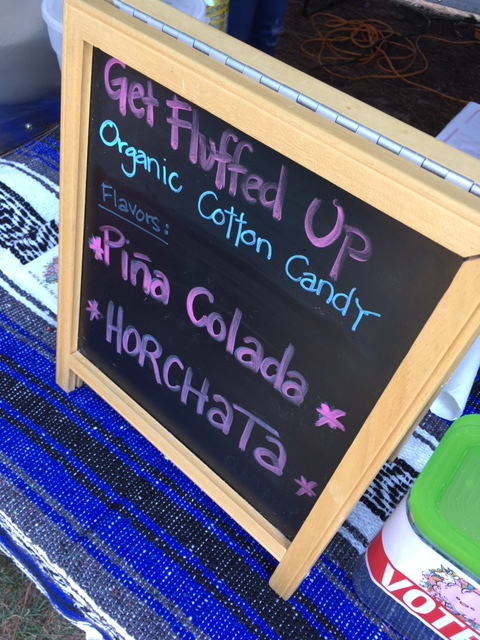 Get Fluffed Up
Organic Cotton Candy
Flavors:
*Piña Colada*
*HORCHaTa*
VOTE